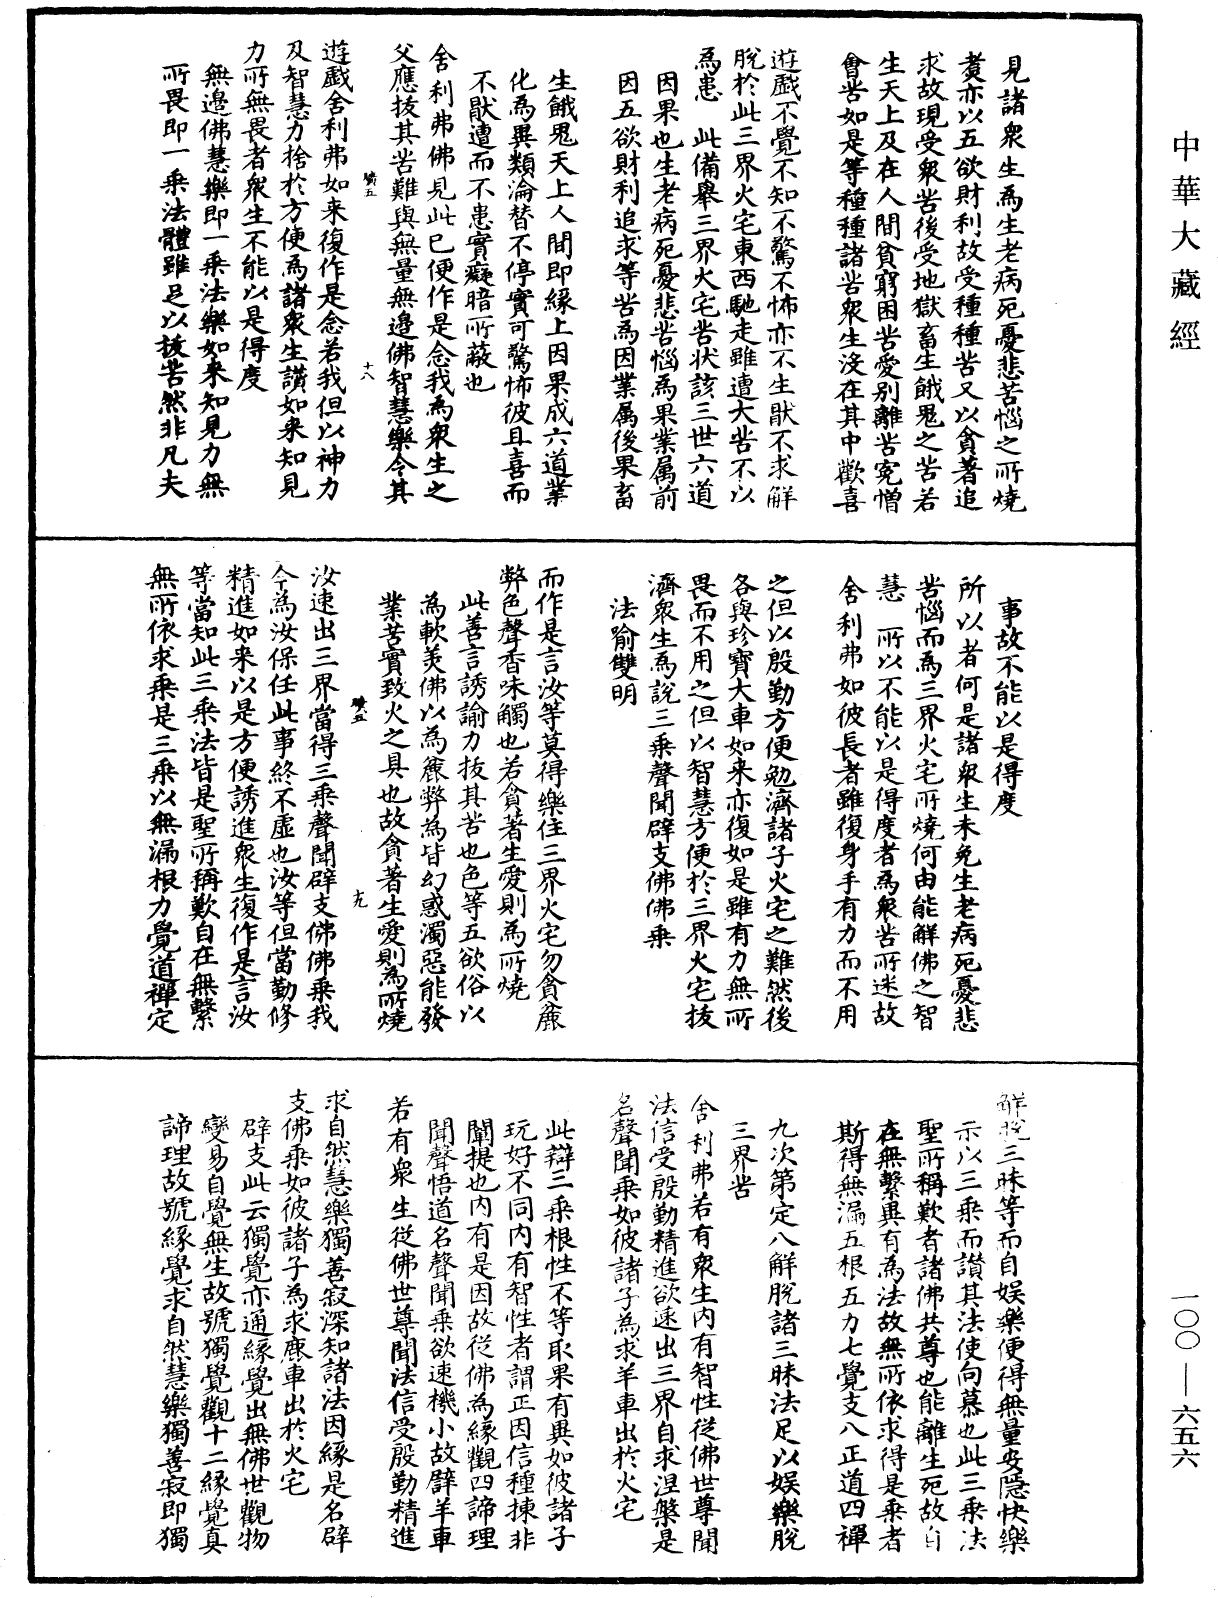 中華大藏經
見諸衆生爲生老病死憂悲苦惱之所燒
煑亦以五欲財利故受種種苦又以貪著追
求故現受衆苦後受地獄畜生餓鬼之苦若
生天上及在人間貧窮困苦愛别離苦寃憎
會苦如是等種種諸苦衆生没在其中歡喜
遊戲不覺不知不驚不怖亦不生猒不求解
脫於此三界火宅東西馳走雖遭大苦不以
爲患　此備舉三界火宅苦状該三世六道
因果也生老病死憂悲苦惱爲果業属前
因五欲財利追求等苦爲因業属後果畜
生餓鬼天上人間即緣上因果成六道業
化爲異類淪替不停實可驚怖彼且喜而
不猒遭而不患實癡暗所蔽也
舍利弗佛見此已便作是念我爲衆生之
父應拔其苦難與無量無邉佛智慧樂令其
遊戲舍利弗如来復作是念若我但以神力
及智慧力捨於方便爲諸衆生讃如来知見
力所無畏者衆生不能以是得度
無邉佛慧樂即一乘法樂如来知見力無
所畏即一乘法體雖足以拔苦然非凡夫
事故不能以是得度
所以者何是諸衆生未免生老病死憂悲
苦惱而爲三界火宅所燒何由能解佛之智
慧　所以不能以是得度者爲衆苦所迷故
舍利弗如彼長者雖復身手有力而不用
之但以殷勤方便勉濟諸子火宅之難然後
各與珍寶大車如来亦復如是雖有力無所
畏而不用之但以智慧方便於三界火宅拔
濟衆生爲說三乘聲聞辟支佛佛乘
法喻雙明
而作是言汝等莫得樂住三界火宅勿貪麁
弊色聲香味觸也若貪著生愛則爲所燒
此善言誘諭力拔其苦也色等五欲俗以
爲軟美佛以爲麁弊爲皆幻惑濁惡能發
業苦實致火之具也故貪著生愛則爲所燒
汝速出三界當得三乘聲聞辟支佛佛乘我
今爲汝保任此事終不虛也汝等但當勤修
精進如来以是方便誘進衆生復作是言汝
等當知此三乘法皆是聖所稱歎自在無繫
無所依求乘是三乘以無漏根力覺道禪定
解脫三昧等而自娱樂便得無量安隱快樂
示以三乘而讃其法使向慕也此三乘法
聖所稱歎者諸佛共尊也能離生死故自
在無繫異有爲法故無所依求得是乘者
斯得無漏五根五力七覺支八正道四禪
九次第定八解脫諸三昧法足以娱樂脫
三界苦
舍利弗若有衆生内有智性從佛世尊聞
法信受殷勤精進欲速出三界自求涅槃是
名聲聞乘如彼諸子爲求羊車出於火宅
此辯三乘根性不等取果有異如彼諸子
玩好不同内有智性者謂正因信種揀非
闡提也内有是因故從佛爲緣觀四諦理
聞聲悟道名聲聞乘欲速機小故譬羊車
若有衆生從佛世尊聞法信受殷勤精進
求自然慧樂獨善寂深知諸法因緣是名辟
支佛乘如彼諸子爲求鹿車出於火宅
辟支此云獨覺亦通緣覺出無佛世觀物
變易自覺無生故號獨覺觀十二緣覺真
諦理故號緣覺求自然慧樂獨善寂即獨
一〇〇—六五六